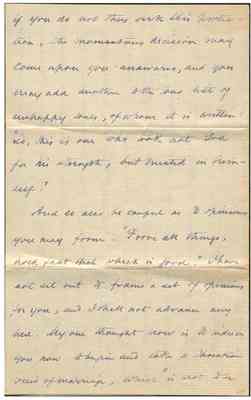 if you do not thus seek this protec-
tion, the momentous decision may
come upon you unawares, and you
may add another to the sad list of
unhappy souls, of whom it is written
"Lo, this is one who took not God
for his strength, but trusted in him-
self."
And so also be careful as to opinions
you may form. "Prove all things,
hold fast that which is good." I have
not set out to frame a set of opinions
for you, and I shall not advance any
here. My one thought now is to induce
you now to begin and take a
view of marriage, which is not